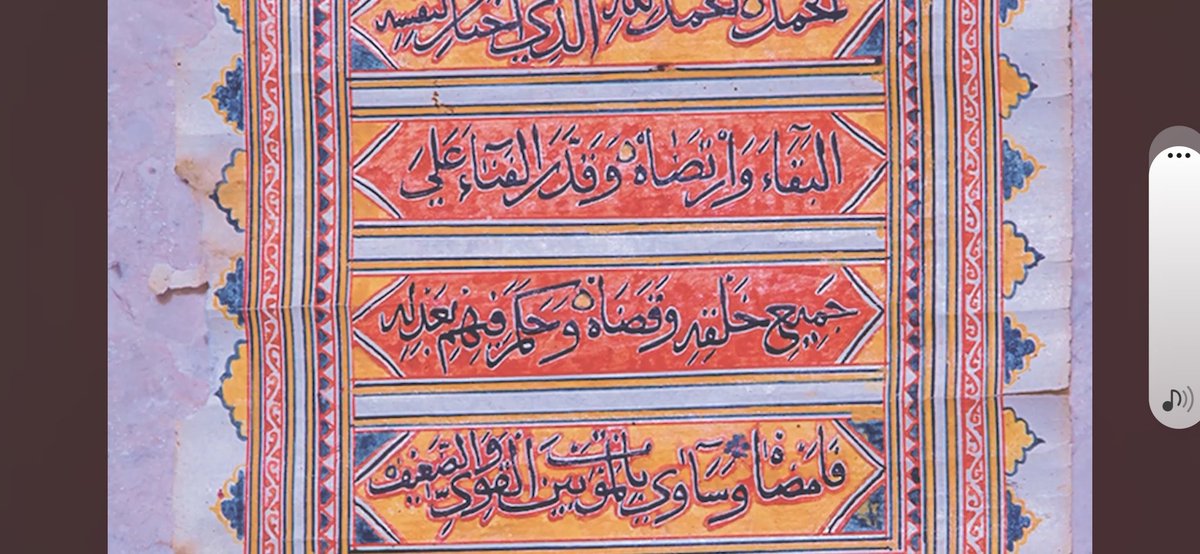 لله الذي اختار لنفسه
البَقَاءَ وَارْتضَاهُ وَقَدَّرَ الفَنَاءَ عَلَي
جَمِيعِ خَلْقِهِ وقَضَاهُ وَحَكَمَ فِيهِم بعَدْلِه
فَامضَاهُ وسَاوي بالمَوت بَين القَوِيّ والضَّعِيف